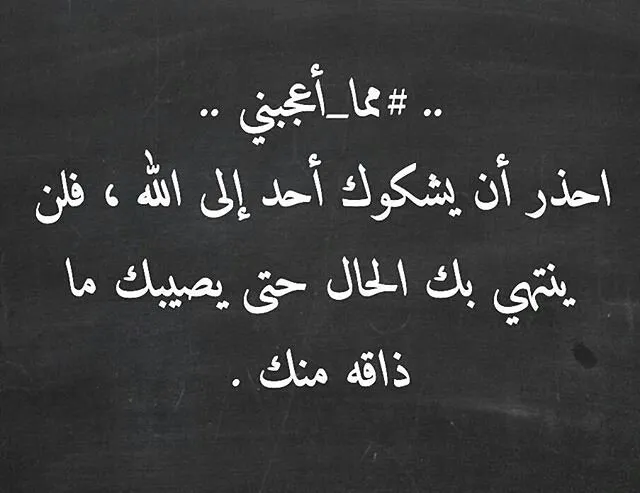 .. #مما_أعجبني ..
احذر أن يشكوك أحد إلى الله ، فلن
ينتهي بك الحال حتى يصيبك ما
ذاقه منك .